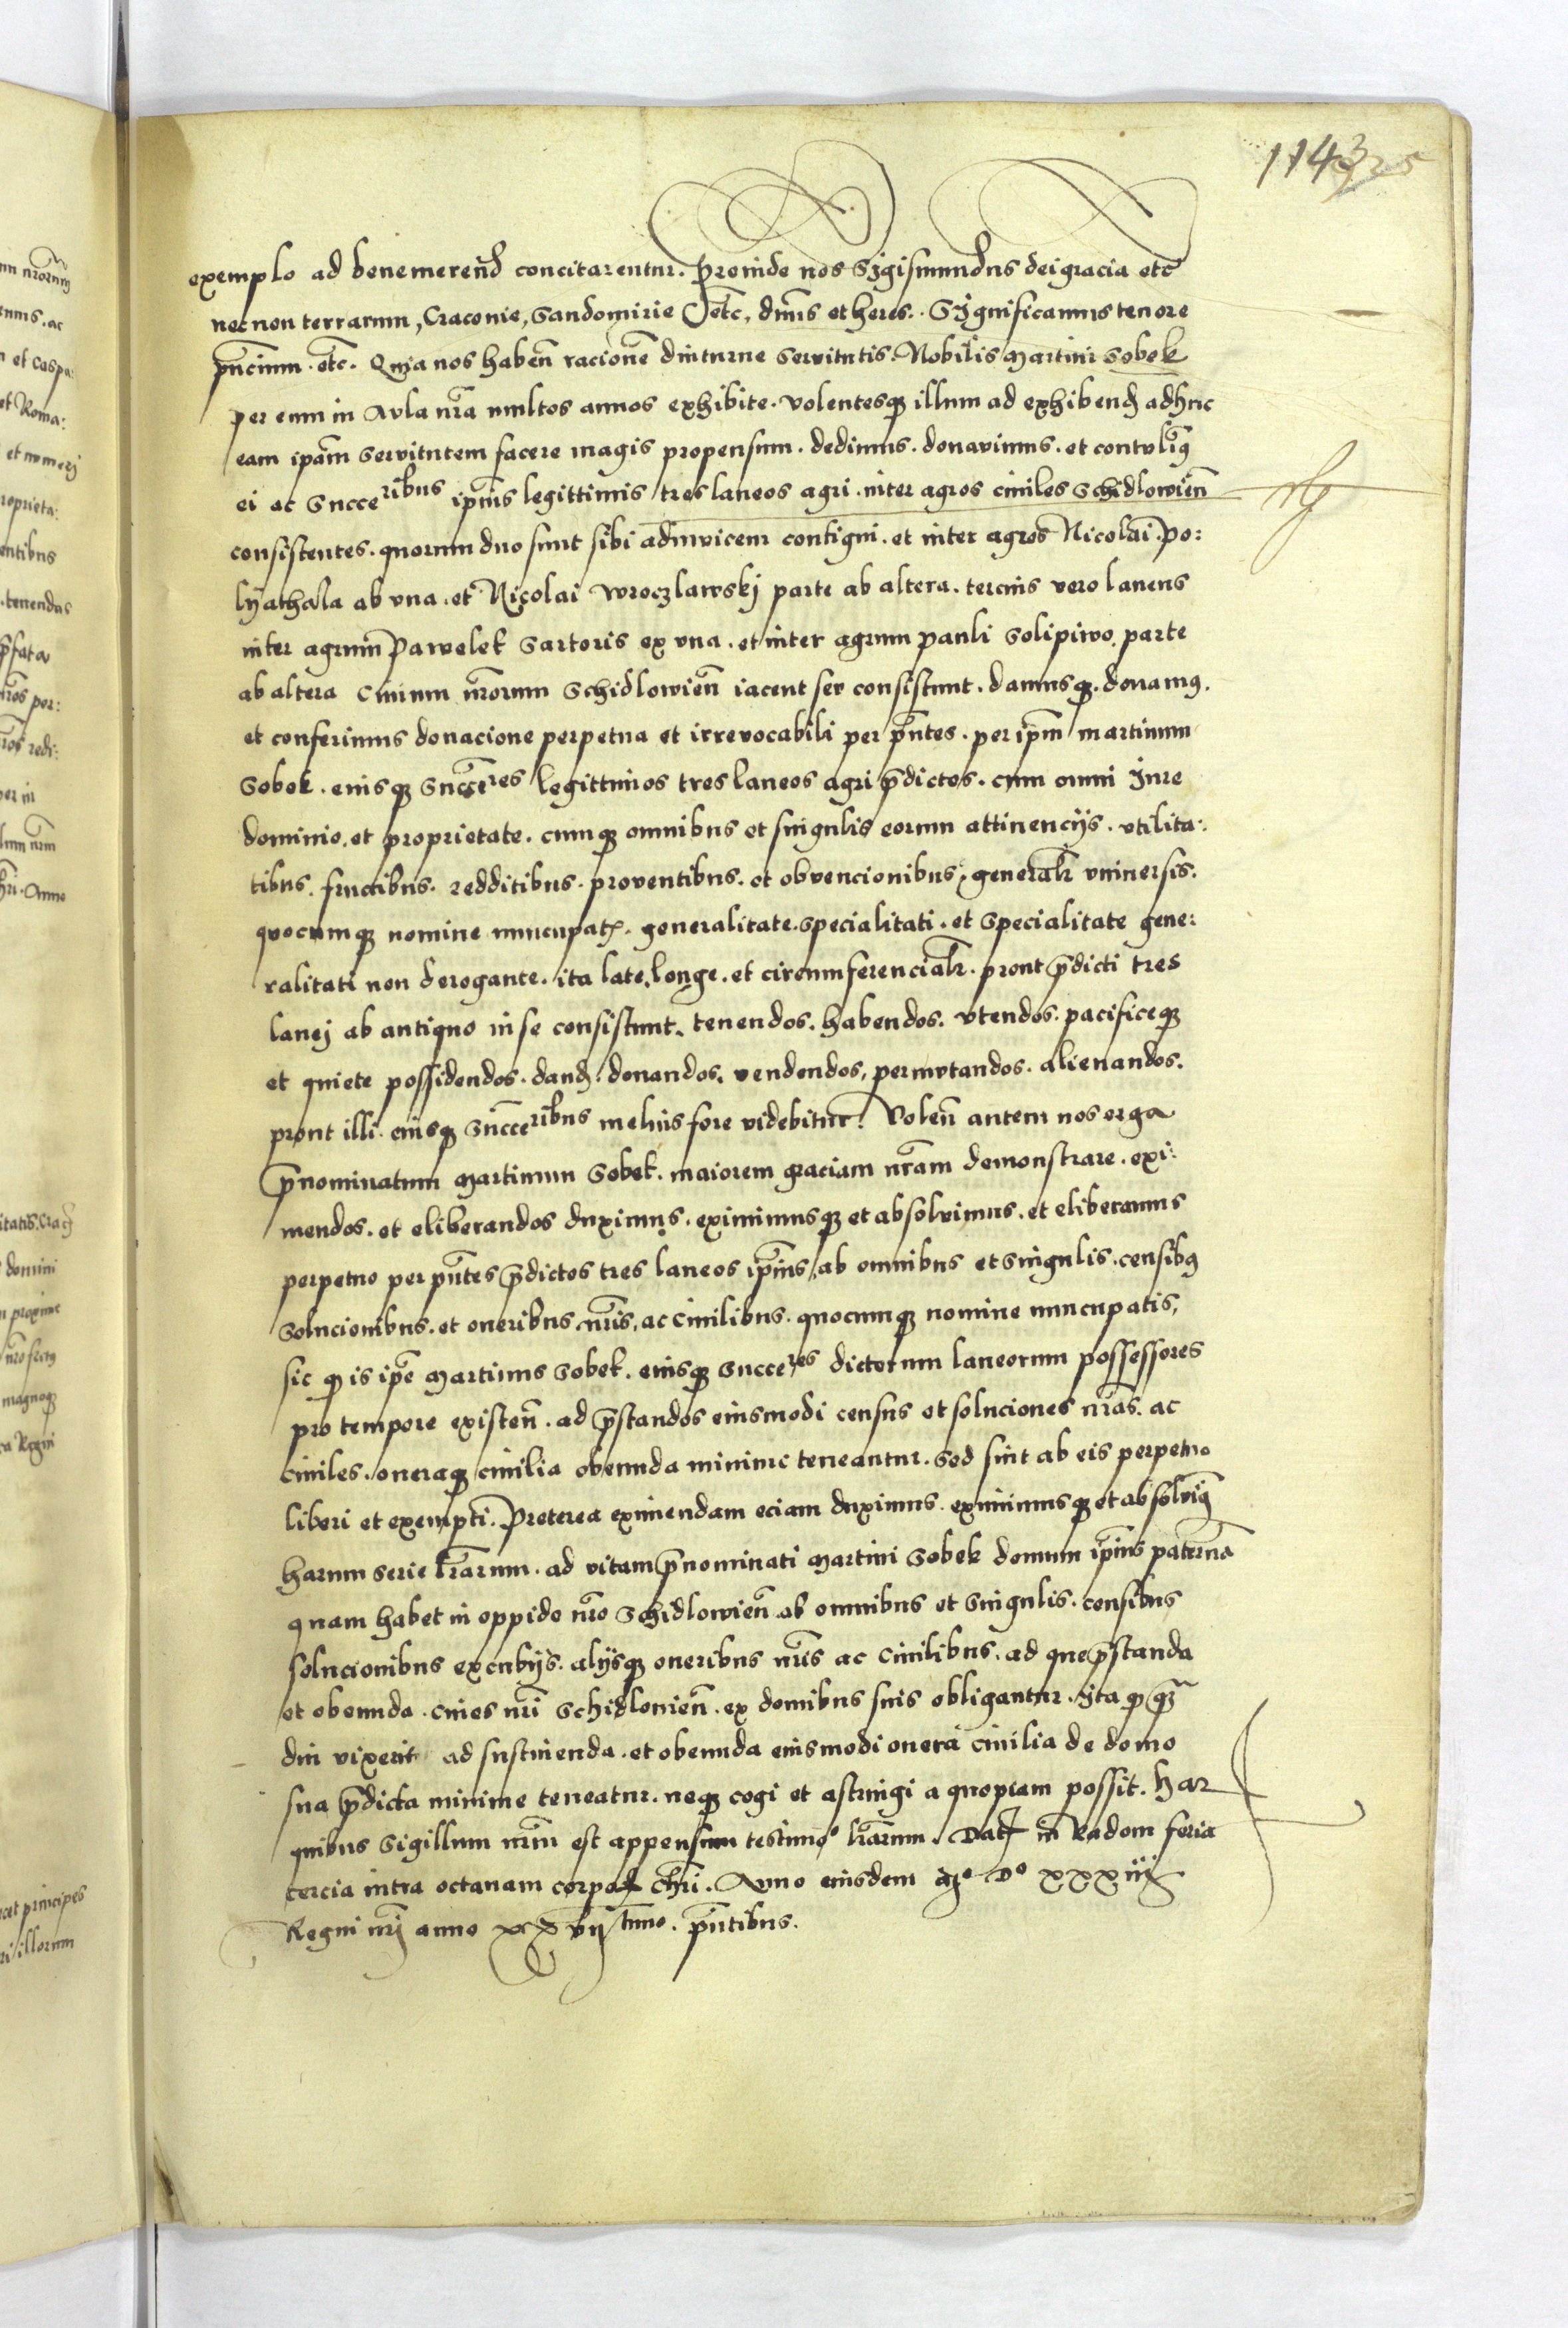 1143
325
exemplo ad benemerend̄ concitarentur. Proinde nos Sigismundus dei gracia etc̄
necnon terrarum, Craconie, Sandomirie etc̄, dn̄us et heres. Significamus tenore
pn̄cium. etc̄. Quia nos haben̄ racionē diuturne servitutis. Nobilis Martini Sobek
per eum in Aula nr̄a multos annos exhibite. volentesq; illum ad exhibend̄ adhuc
eam ipām servitutem facere magis propensum. dedimus. donavimus. et contulimꝰ
ei ac Succeribus ip̄ius legittimis tres laneos agri. inter agros civiles Schidlowien̄
consistentes. quorum duo sunt sibi adinvicem contigui. et inter agros Nicolai Po:
lyathala ab vna. et Nicolai Wroczlawskj parte ab altera. tercius vero laneus
inter agrum Pawelek Sartoris ex vna. et inter agrum Pauli Solipiwo. parte
ab altera Civium nr̄orum Schidlowien̄ iacent seu consistunt. damusq;. donamꝰ.
et conferimus donacione perpetua et irrevocabili per pn̄tes. per ip̄m Martinum
Sobek. eiusq; Succ̄eres legittimos tres laneos agri p̄dictos. cum omni Jure
dominio. et proprietate. cumq; omnibus et singulis eorum attinencijs. vtilita:
tibus. fructibus. redditibus. proventibus. et obvencionibus, generalr̄ vniversis.
quocumq; nomine nuncupat̄. generalitate. specialitati. et specialitate gene:
ralitati non derogante. ita late. longe. et circumferencialr̄. prout p̄dicti tres
lanej ab antiquo in se consistunt. tenendos. habendos. vtendos. pacificeq;
et quiete possidendos. dand̄. donandos. vendendos, permutandos. alienandos.
prout illi. eiusq; Succ̄eribus melius fore videbitur. Volen̄ autem nos erga
p̄nominatum Martinum Sobek. maiorem graciam nr̄am demonstrare. exi:
mendos. et eliberandos duximus. eximimusq; et absolvimus. et eliberamus
perpetuo per pn̄tes p̄dictos tres laneos ip̄ius, ab omnibus et singulis. censibꝰ
Solucionibus. et oneribus nr̄is, ac Civilibus. quocumq; nomine nuncupatis,
sic q̄ is ip̄e Martinus Sobek. eiusq; Succeres dictorum laneorum possessores
pro tempore existen̄. ad p̄standos eiusmodi census et soluciones nr̄as. ac
civiles. oneraq; civilia obeunda minime teneantur. Sed sint ab eis perpetuo
liberi et exempti. Preterea eximendam eciam duximus. eximimusq; et absolvimꝰ
harum serie lr̄arum. ad vitam p̄nominati Martini Sobek domum ip̄ius paternā
quam habet in oppido nr̄o Schidlowien̄ ab omnibus et singulis. censibus
solucionibus excubijs. alijsq; oneribus nr̄is ac Civilibus. ad que p̄standa
et obeunda. cives nr̄i Schidlovien̄. ex domibus suis obligantur. Ita q̄ q̄m
diu vixerit ad sustinenda. et obeunda eiusmodi onera civilia de domo
sua p̄dicta minime teneatur. neq; cogi et astringi a quopiam possit. Har
quibus Sigillum nr̄m est appensum testimo° lr̄arum. Dat̄ in Radom feria
tercia intra octavam corpor̄ chr̄i. Anno eiusdem M° D° xxxiij
Regni nr̄j anno xxvijtimo. pn̄tibus.